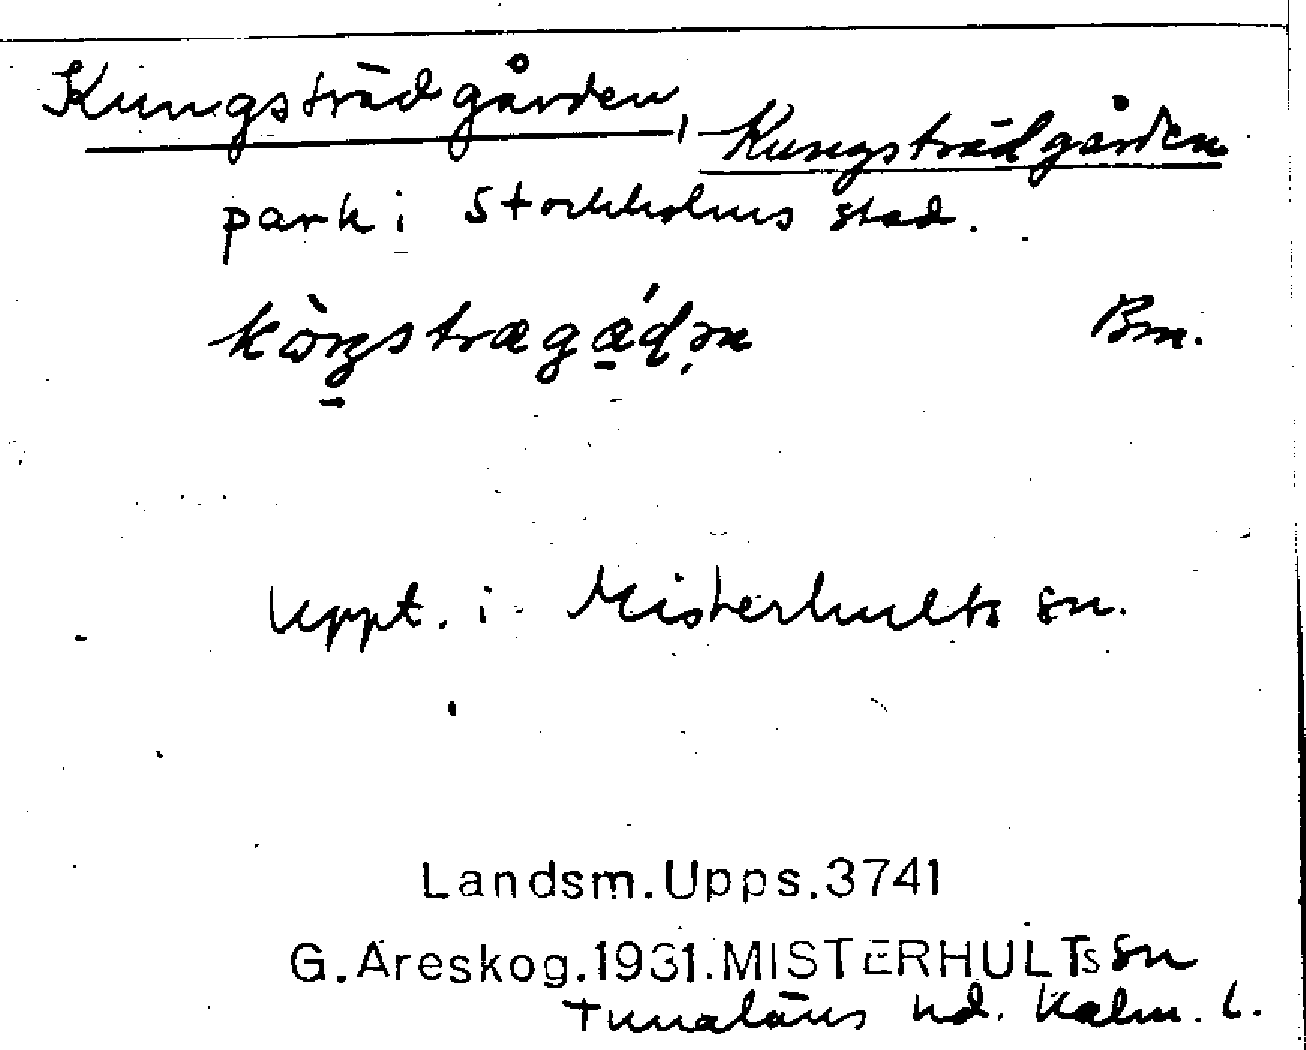 Kungsträdgården, Kungsträdgården
park i Stockholms stad.
Bm.
Uppt. i Misterhults sn.
Landsm.Upps.3741
G.Areskog.1931.MISTERHULTs sn
Tunaläns hd. Kalm. l.